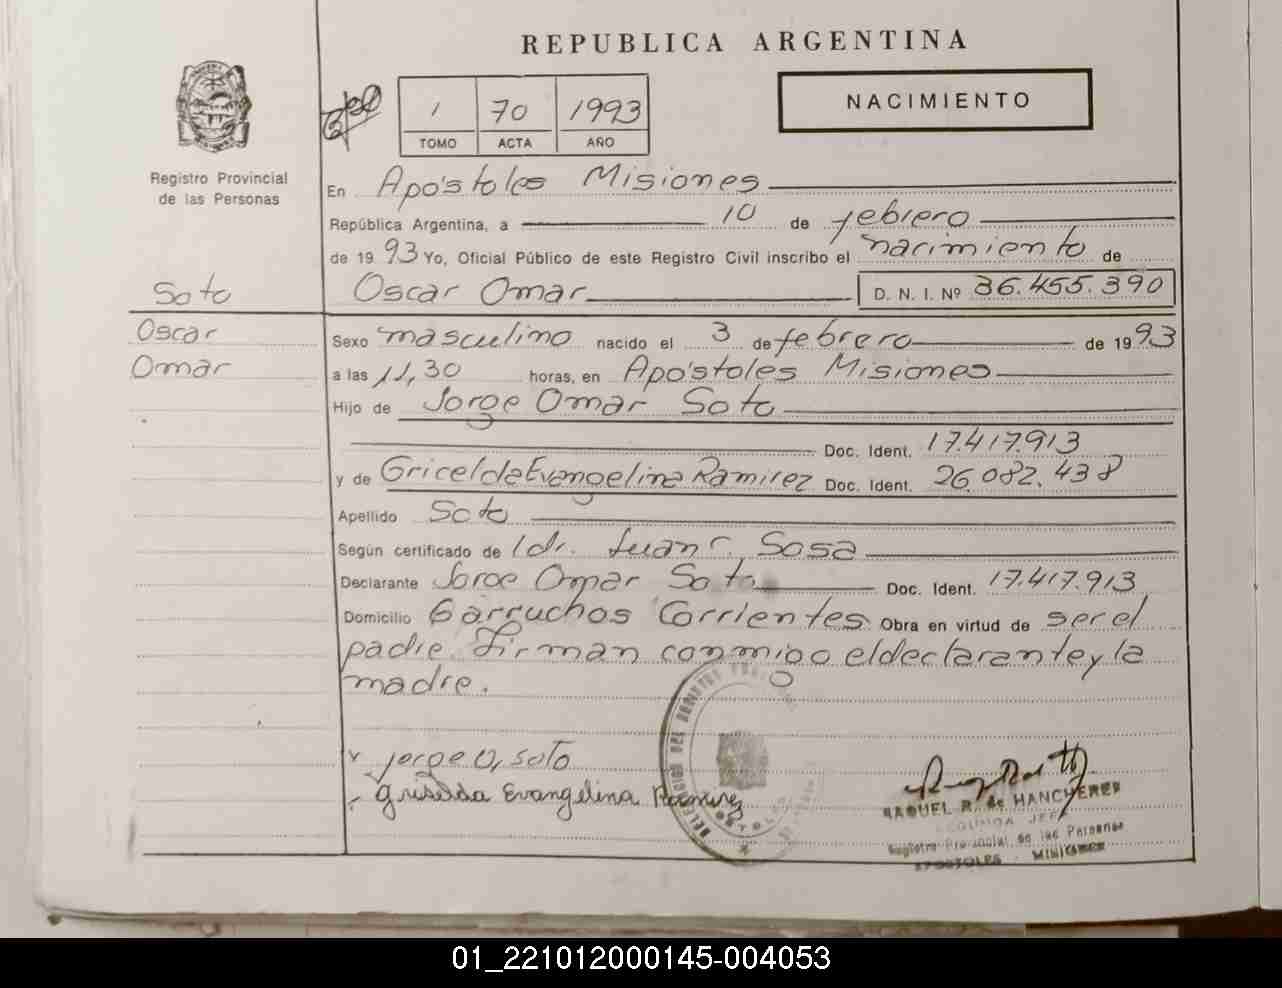 REPUBLICA ARGENTINA
1 70 1993
TOMO ACTA AÑO
NACIMIENTO
Registro Provincial
de las Personas
En Apóstoles Misiones
República Argentina, a 10 de febrero
de 1993 Yo, Oficial Público de este Registro Civil inscribo el nacimiento de
Oscar Omar D. N. I. Nº 36.455.390
Soto
Oscar
Omar
Sexo masculino nacido el 3 de febrero de 1993
a las 11,30 horas, en Apóstoles Misiones
Hijo de Jorge Omar Soto
Doc. Ident. 17.417.913
y de Gricelda Evangelina Ramirez Doc. Ident. 26.082.438
Apellido Soto
Según certificado de Juan C. Sosa
Declarante Jorge Omar Soto Doc. Ident. 17.417.913
Domicilio Garruchos Corrientes Obra en virtud de ser el
padre. Firman conmigo el declarante y la
madre.
Jorge O, Soto
Griselda Evangelina Ramirez
DELEGACION DEL REGISTRO
RAQUEL R. de HANCHERER
SEGUNDA JEFE
Registro Provincial de las Personas
APOSTOLES - MISIONES
01_221012000145-004053